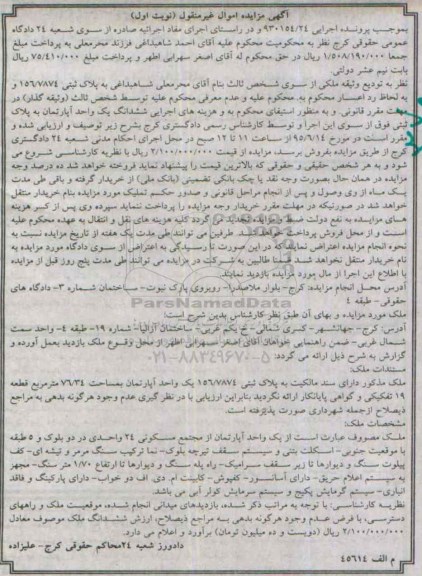 آگهی مزایده اموال غیرمنقول (نوبت اول)
بموجب پرونده اجرایی 930154/24 و در راستای اجرای مفاد اجرائیه صادره از سوی شعبه 24 دادگاه
عمومی حقوقی کرج نظر به محکومیت محکوم علیه آقای احمد شاهیداغی فرزند محرمعلی به پرداخت مبلغ
جمعا 1/508/190/000 ریال در حق محکوم له آقای اصغر سهرابی اطهر و پرداخت مبلغ 75/410/000 ریال
بابت نیم عشر دولتی.
نظر به تودیع وثیقه ملکی از سوی شخص ثالث بنام آقای محرمعلی شاهیداغی به پلاک ثبتی 156/7874 و
به لحاظ رد اعسار محکوم به محکوم علیه و عدم معرفی محکوم علیه توسط شخص ثالث (وثیقه گذار) در
مهلت مقرر قانونی و به منظور استیفای محکوم به و هزینه های اجرایی ششدانگ یک واحد آپارتمان به پلاک
ثبتی فوق از سوی این اجرا و توسط کارشناس رسمی دادگستری کرج بشرح زیر توصیف و ارزیابی شده و
مقرر است در مورخ 95/6/14 از ساعت 11 تا 12 صبح در محل اجرای احکام مدنی شعبه 24 دادگستری
کرج از طریق مزایده بفروش برسد، مزایده از قیمت 2/100/000/000 ریال با نظریه کارشناسی شروع می
شود و به هر شخص حقیقی و حقوقی که بالاترین قیمت را پیشنهاد نماید فروخته خواهد شد ده درصد وجه
مزایده در همان حال بصورت وجه نقد یا چک بانکی تضمینی (بانک ملی) از خریدار گرفته و باقی طی مدت
یک ماه از وی وصول و پس از انجام مراحل قانونی و صدور حکم تملیک مورد مزایده بنام خریدار منتقل
خواهد شد در صورتیکه در مهلت مقرر خریدار وجه مزایده را پرداخت ننماید سپرده وی پس از کسر هزینه
های مزایده به نفع دولت ضبط و مزایده تجدید می گردد کلیه هزینه های نقل و انتقال به عهده محکوم علیه
است و از محل فروش پرداخت خواهد شد. طرفین می توانند طی مدت یک هفته از تاریخ مزایده نسبت به
نحوه انجام مزایده اعتراض نمایند که در این صورت تا رسیدگی به اعتراض از سوی دادگاه مورد مزایده به
نام خریدار منتقل نخواهد شد ضمنا طالبین به شرکت در مزایده می توانند طی مدت پنج روز قبل از مزایده
با اطلاع این اجرا از مال مورد مزایده بازدید نمایند.
آدرس محل انجام مزایده: کرج- بلوار ملاصدرا- روبروی پارک نبوت- ساختمان شماره 3- دادگاه های
حقوقی- طبقه 4
ملک مورد مزایده و بهای آن طبق نظر کارشناس بدین شرح است:
آدرس: کرج- جهانشهر- کسری شمالی- خ یکم غربی- ساختمان آزالیا- شماره 19- طبقه 4- واحد سمت
شمال غربی- ضمن راهنمایی خواهان آقای اصغر سهرابی اطهر از محل وقوع ملک بازدید بعمل آورده و
گزارش به شرح ذیل ارائه می گردد:
مستندات ملک:
ملک مذکور دارای سند مالکیت به پلاک ثبتی 156/7874 یک واحد آپارتمان بمساحت 76/34 مترمربع قطعه
19 تفکیکی و گواهی پایانکار ارائه نگردید بنابراین ارزیابی با در نظر گیری عدم وجود هرگونه بدهی به مراجع
ذیصلاح ازجمله شهرداری صورت پذیرفته است.
مشخصات ملک:
ملک معروف عبارت است از یک واحد آپارتمان از مجتمع مسکونی 24 واحدی در دو بلوک و 5 طبقه
با موقعیت جنوبی- اسکلت بتنی و سیستم سقف تیرچه بلوک- نما ترکیب سنگ مرمر و تیشه ای- کف
پیلوت سنگ و دیوارها تا زیر سقف سرامیک- راه پله سنگ و دیوارها تا ارتفاع 1/70 متر سنگ- مجهز
به سیستم اعلام حریق- دارای آسانسور- کفپوش- کابینت ام. دی. اف دو خواب- دارای پارکینگ و فاقد
انباری- سیستم گرمایش پکیج و سیستم سرمایش کولر آبی می باشد.
نظریه کارشناسی: با توجه به مراتب ذکر شده، بازدیدهای میدانی انجام شده، موقعیت ملک و راههای
دسترسی، با فرض عدم وجود هرگونه بدهی به مراجع ذیصلاح، ارزش ششدانگ ملک موصوف معادل
2/100/000/000 ریال (دویست و ده میلیون تومان) برآورد و اعلام می دارد.
دادورز شعبه 24 محاکم حقوقی کرج- علیزاده
م الف 45614
ParsNamadData
021-88349670-5